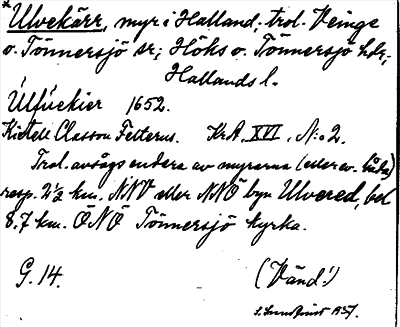 *Ulvekärr, myr i Halland, trol. Veinge
o. Tönnersjö sr; Höks o. Tönnersjö hdr;
Hallands l.
Úlfúckier 1652.
Kietell Classon Felterus. KrA. XVI, N:o 2.
Trol. avsågs endera av myrarna (eller ev. båda)
resp. 2½ km. NNV eller NNÖ byn Ulvered, bel.
8.7 km. ÖNÖ Tönnersjö kyrka.
G. 14. (Vänd!)
1937.